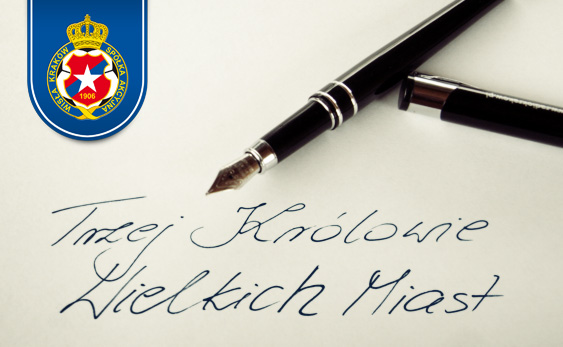 WISŁA KRAKÓW SPÓŁKA AKCYJNA
1906
Trzej Królowie
Wielkich Miast